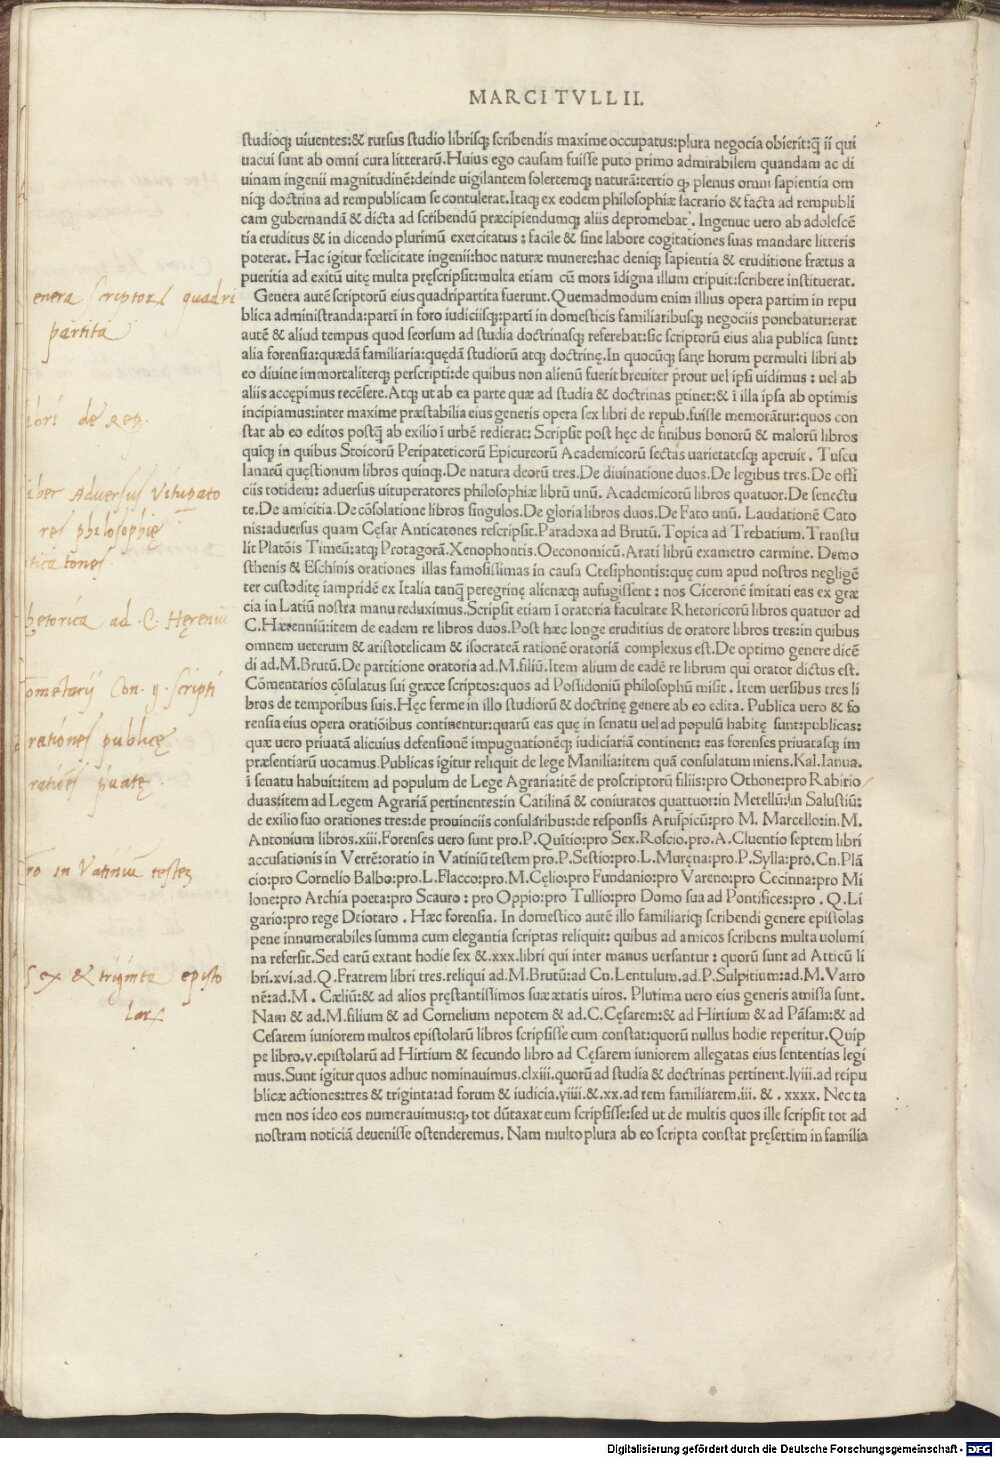 MARCI TVLLII.
studioq; uiuentes:& rursus studio librisq; scribendis maxime occupatus:plura negocia obierit:q̃ ii qui
uacui sunt ab omni cura litterarū.Huius ego causam fuisse puto primo admirabilem quandam ac di
uinam ingenii magnitudinē:deinde uigilantem solertemq; naturā:tertio ꝙ plenus omni sapientia om
niq; doctrina ad rempublicam se contulerat.Itaq; ex eodem philosophiæ sacrario & facta ad rempubli
cam gubernandā & dicta ad scribendū præcipiendumq; aliis depromebat. Ingenue uero ab adolescē
tia eruditus & in dicendo plurimū exercitatus : facile & sine labore cogitationes suas mandare litteris
poterat. Hac igitur fœlicitate ingenii:hoc naturæ munere:hac deniq; sapientia & eruditione frætus a
pueritia ad exitū uitę multa pręscripsit:multa etiam cū mors īdigna illum eripuit:scribere instituerat.
Genera autē scriptorū eius quadripartita fuerunt.Quemadmodum enim illius opera partim in repu
blica administranda:partī in foro iudiciisq;:partī in domesticis familiaribusq; negociis ponebatur:erat
autē & aliud tempus quod seorsum ad studia doctrinasq; referebat:sic scriptorū eius alia publica sunt:
alia forensia:quædā familiaria:quędā studiorū atq; doctrinę.In quocūq; sane horum permulti libri ab
eo diuine immortaliterq; perscripti:de quibus non alienū fuerit breuiter prout uel ipsi uidimus : uel ab
aliis accępimus recēsere.Atq; ut ab ea parte quæ ad studia & doctrinas ptinet:& ī illa ipsa ab optimis
incipiamus:inter maxime præstabilia eius generis opera sex libri de repub.fuisse memorātur:quos con
stat ab eo editos postq̃ ab exilio ī urbē redierat: Scripsit post hęc de finibus bonorū & malorū libros
quiq; in quibus Stoicorū Peripateticorū Epicureorū Academicorū sectas uarietatesq; aperuit. Tuscu
lanarū quęstionum libros quinq;.De natura deorū tres.De diuinatione duos.De legibus tres.De offi
ciis totidem: aduersus uituperatores philosophiæ librū unū. Academicorū libros quatuor.De senectu
te.De amicitia.De cōsolatione libros singulos.De gloria libros duos.De Fato unū. Laudationē Cato
nis:aduersus quam Cęsar Anticatones rescripsit.Paradoxa ad Brutū.Topica ad Trebatium.Transtu
lit Platōis Timeū:atq; Protagorā.Xenophontis.Oeconomicū.Arati librū exametro carmine. Demo
sthenis & Eschinis orationes illas famosissimas in causa Ctesiphontis:quę cum apud nostros negligē
ter custoditę iampridē ex Italia tanq̃ peregrinę alienæq; aufugissent : nos Ciceronē imitati eas ex græ
cia in Latiū nostra manu reduximus.Scripsit etiam ī oratoria facultate Rhetoricorū libros quatuor ad
C.Hærenniū:item de eadem re libros duos.Post hæc longe eruditius de oratore libros tres:in quibus
omnem ueterum & aristotelicam & isocrateā rationē oratoriā complexus est.De optimo genere dicē
di ad.M.Brutū.De partitione oratoria ad.M.filiū.Item alium de eadē re librum qui orator dictus est.
Cōmentarios cōsulatus sui græce scriptos:quos ad Possidoniū philosophū misit . Item uersibus tres li
bros de temporibus suis.Hęc ferme in illo studiorū & doctrinę genere ab eo edita. Publica uero & fo
rensia eius opera oratiōibus continentur:quarū eas quę in senatu uel ad populū habitę sunt:publicas:
quæ uero priuatā alicuius defensionē impugnationēq; iudiciariā continent: eas forenses priuatasq; im
præsentiarū uocamus.Publicas igitur reliquit de lege Manilia:item quā consulatum iniens.Kal.Ianua.
ī senatu habuit:item ad populum de Lege Agraria:itē de proscriptorū filiis:pro Othone:pro Rabirio
duas:item ad Legem Agrariā pertinentes:in Catilinā & coniuratos quattuor:in Metellū:in Salustiū:
de exilio suo orationes tres:de prouinciis consularibus:de responsis Aruspicū:pro M. Marcello:in.M.
Antonium libros.xiii.Forenses uero sunt pro.P.Quītio:pro Sex.Roscio.pro.A.Cluentio septem libri
accusationis in Verrē:oratio in Vatiniū testem pro.P.Sestio:pro.L.Muręna:pro.P.Sylla:pro.Cn.Plā
cio:pro Cornelio Balbo:pro.L.Flacco:pro.M.Cęlio:pro Fundanio:pro Vareno:pro Cecinna:pro Mi
lone:pro Archia poeta:pro Scauro : pro Oppio:pro Tullio:pro Domo sua ad Pontifices:pro . Q.Li
gario:pro rege Deiotaro . Hæc forensia. In domestico autē illo familiariq; scribendi genere epistolas
pene innumerabiles summa cum elegantia scriptas reliquit: quibus ad amicos scribens multa uolumi
na refersit.Sed earū extant hodie sex &.xxx.libri qui inter manus uersantur : quorū sunt ad Atticū li
bri.xvi.ad.Q.Fratrem libri tres.reliqui ad.M.Brutū:ad Cn.Lentulum.ad.P.Sulpitium:ad.M.Varro
nē:ad.M . Cæliū:& ad alios pręstantissimos suæ ætatis uiros. Plurima uero eius generis amissa sunt.
Nam & ad.M.filium & ad Cornelium nepotem & ad.C.Cęsarem:& ad Hirtium & ad Pāsam:& ad
Cesarem iuniorem multos epistolarū libros scripsisse eum constat:quorū nullus hodie reperitur.Quip
pe libro.v.epistolarū ad Hirtium & secundo libro ad Cęsarem iuniorem allegatas eius sententias legi
mus.Sunt igitur quos adhuc nominauimus.clxiii.quorū ad studia & doctrinas pertinent.lyiii.ad reipu
blicæ actiones:tres & triginta:ad forum & iudicia.yiiii.&.xx.ad rem familiarem.iii. & . xxxx. Nec ta
men nos ideo eos numerauimus:ꝙ tot dūtaxat eum scripsisse:sed ut de multis quos ille scripsit tot ad
nostram noticiā deuenisse ostenderemus. Nam multo plura ab eo scripta constat pręsertim in familia
enera scriptorȝ quadri
partita
ibri de Rep.
iber Adversus Vitupato
res philosophię
tica tones
hetorica ad .C. Hęreniū
ometarij Con. g. scripti
rationes publicę
ratiões puatę.
ro in Vatiniū testez
Sex & triginta episto
larȝ
Digitalisierung gefördert durch die Deutsche Forschungsgemeinschaft - DFG